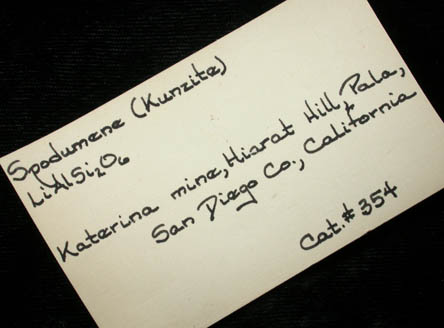 Spodumene (Kunzite)
LiAlSi₂O₆
Katerina mine, Hiarat Hill, Pala,
San Diego Co., California
Cat.# 354